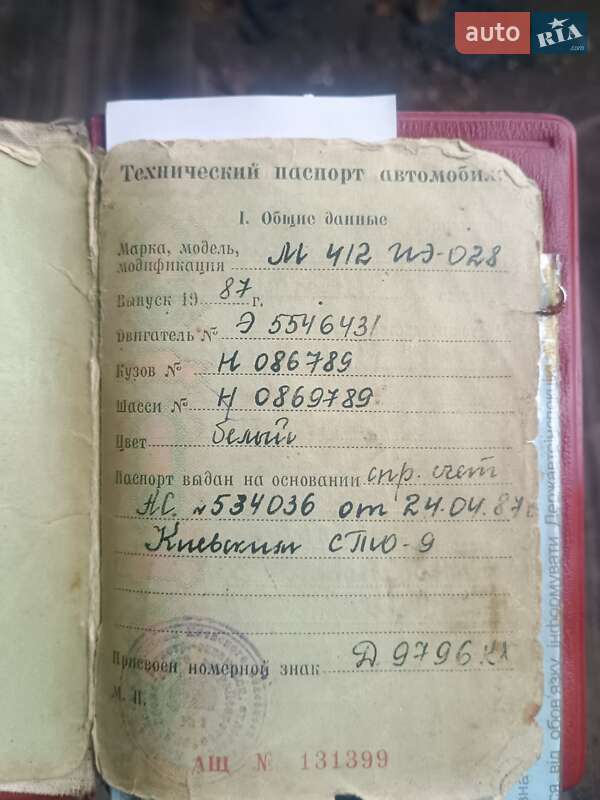 auto RIA.com
Технический паспорт автомобиля
I. Общие данные
Марка, модель,
модификация М 412 ИЭ-028
Выпуск 19 87 г.
Двигатель № Э 5546431
Кузов № Н 086789
Шасси № Н 0869789
Цвет белый
Паспорт выдан на основании спр. счет
АС. № 534036 от 24.04.87
Киевским СТЮ-9
Присвоен номерной знак Д 9796
М. П.
АЩ № 131399
ся від обов'язку інформувати Державтоінспекцію